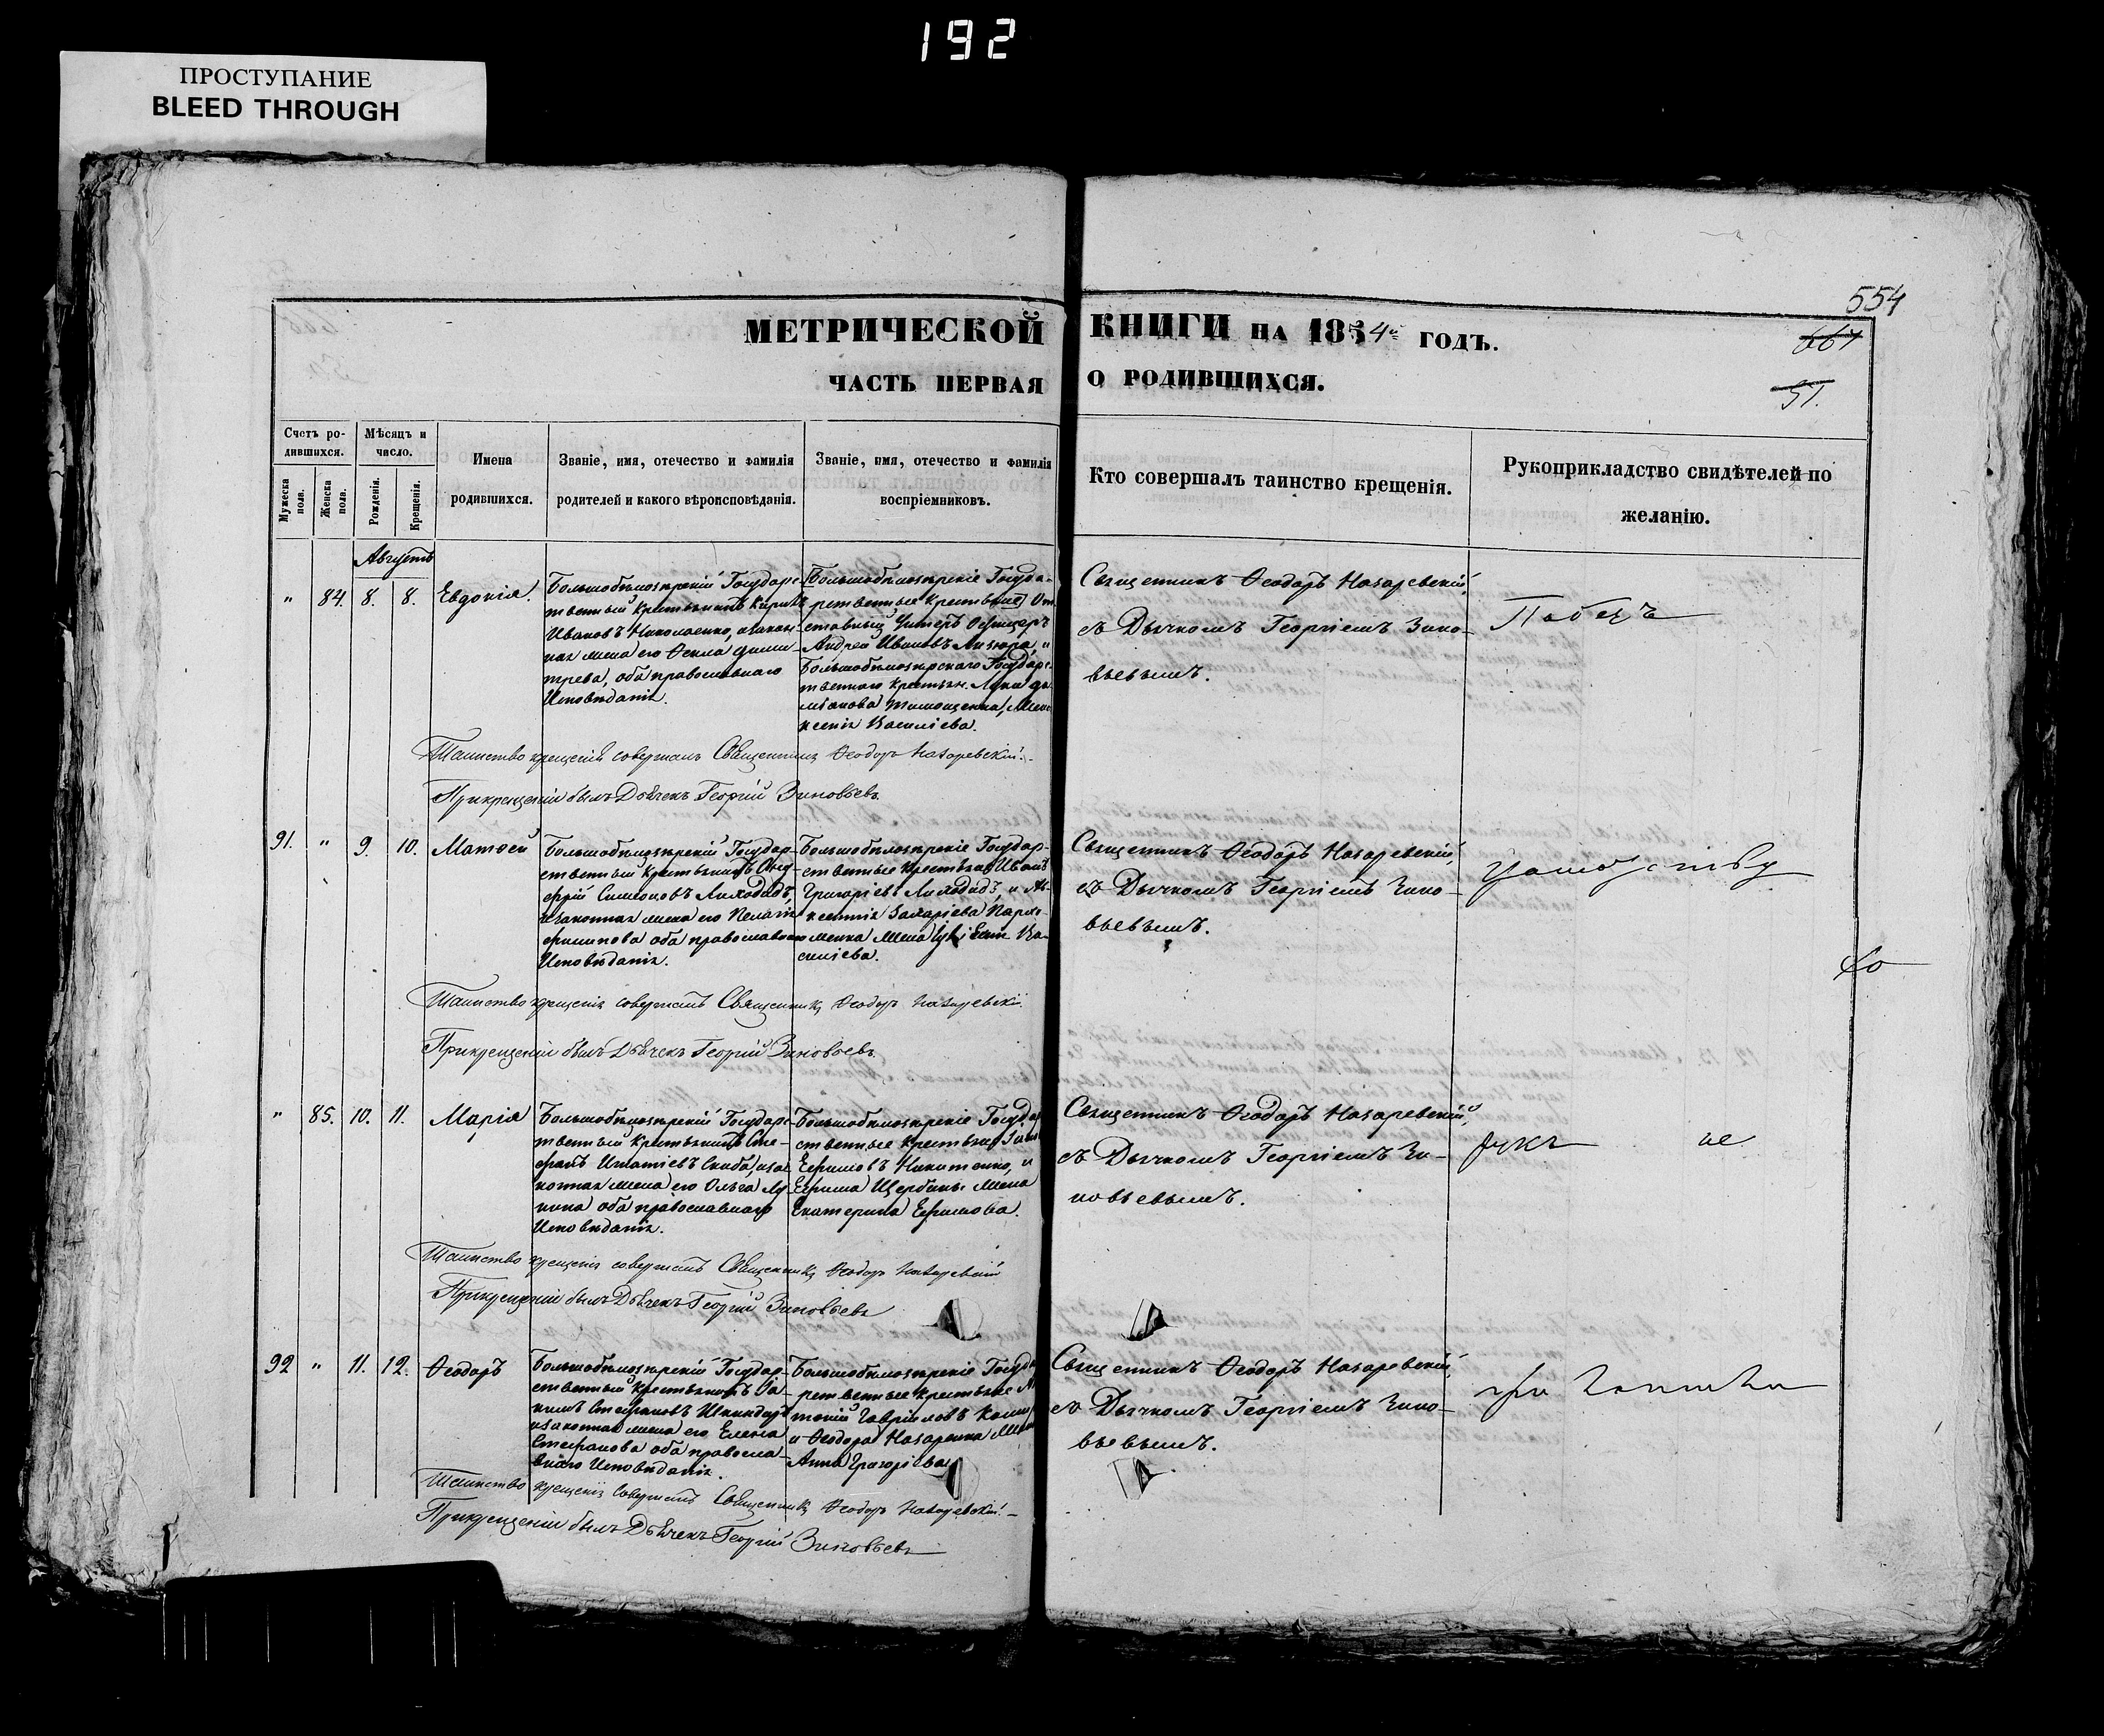 192
ПРОСТУПАНИЕ
BLEED THROUGH
554
МЕТРИЧЕСКОЙ КНИГИ НА 1854й ГОДЪ.
ЧАСТЬ ПЕРВАЯ О РОДИВШИХСЯ.
51.
Счетъ ро-
дившихся.
Мужеска
пола.
Женска
пола.
Мѣсяцъ и
число.
Рожденія.
Крещенія.
Имена
родившихся.
Званіе, имя, отечество и фамилія
родителей и какого вѣроисповѣданія.
Званіе, имя, отечество и фамилія
воспріемниковъ.
Кто совершалъ таинство крещенія.
Рукоприкладство свидѣтелей по
желанію.
Августъ
" 84. 8. 8. Евдокія.
Большобѣлозѣрскій Государс-
твенный крестьянинъ
Ивановъ Николаенко, и закон-
ная жена его Ѳекла Дими-
трева, оба православнаго
Исповѣданія.
Большобѣлозѣрскіе Госуда-
рственные крестьяне От
ставный Унтеръ Офицеръ
Андрей Ивановъ и
Большобѣлозѣрскаго Государс-
твеннаго крестьян. Луки
Василіева.
Священникъ Ѳеодоръ Назаревскій,
съ Дьячкомъ Георгіемъ Зино-
вьевымъ.
Таинство крещенія совершалъ Священникъ Ѳеодоръ Назаревскій.
При крещеніи былъ Дьячекъ Георгій Зиновьевъ
91. " 9. 10. Матѳей
Большобѣлозѣрскій Государ-
ственный крестьянинъ Ону-
фрій Симоновъ Лиходидъ,
и законная жена его Пелагія
Филипова оба православнаго
Исповѣданія.
Большобѣлозѣрскіе Государ-
ственные крестьяне Иванъ
Григоріевъ Лиходидъ, и
Захаріева
жена Ва-
силіева.
Священникъ Ѳеодоръ Назаревскій,
съ Дьячкомъ Георгіемъ Зино-
вьевымъ.
Таинство крещенія совершалъ Священникъ Ѳеодоръ Назаревскій.
При крещеніи былъ Дьячекъ Георгій Зиновьевъ
" 85. 10. 11. Марія
Большобѣлозѣрскій Государс-
твенный крестьянинъ Сте-
фанъ Игнатіевъ Скиба, и за
конная жена его Ольга Лу-
кина оба православнаго
Исповѣданія.
Большобѣлозѣрскіе Государ
ственные крестьяне
Ефимовъ Никитенко, и
Ефима Щербины жена
Екатерина Ефимова.
Священникъ Ѳеодоръ Назаревскій,
съ Дьячкомъ Георгіемъ Зи-
новьевымъ.
Таинство крещенія совершалъ Священникъ Ѳеодоръ Назаревскій
При крещеніи былъ Дьячекъ Георгій Зиновьевъ
92 " 11. 12. Ѳеодоръ
Большобѣлозѣрскій Государ-
ственный крестьянинъ Іа-
кимъ Стефановъ
и законная жена его Елена
Стефанова оба правосла-
внаго Исповѣданія.
Большобѣлозѣрскіе Госуда
рственные крестьяне
Гавріиловъ
и Ѳеодора Назаренка жена
Анна Григоріева
Священникъ Ѳеодоръ Назаревскій,
съ Дьячкомъ Георгіемъ Зино-
вьевымъ.
Таинство крещенія совершалъ Священникъ Ѳеодоръ Назаревскій.
При крещеніи былъ Дьячекъ Георгій Зиновьевъ